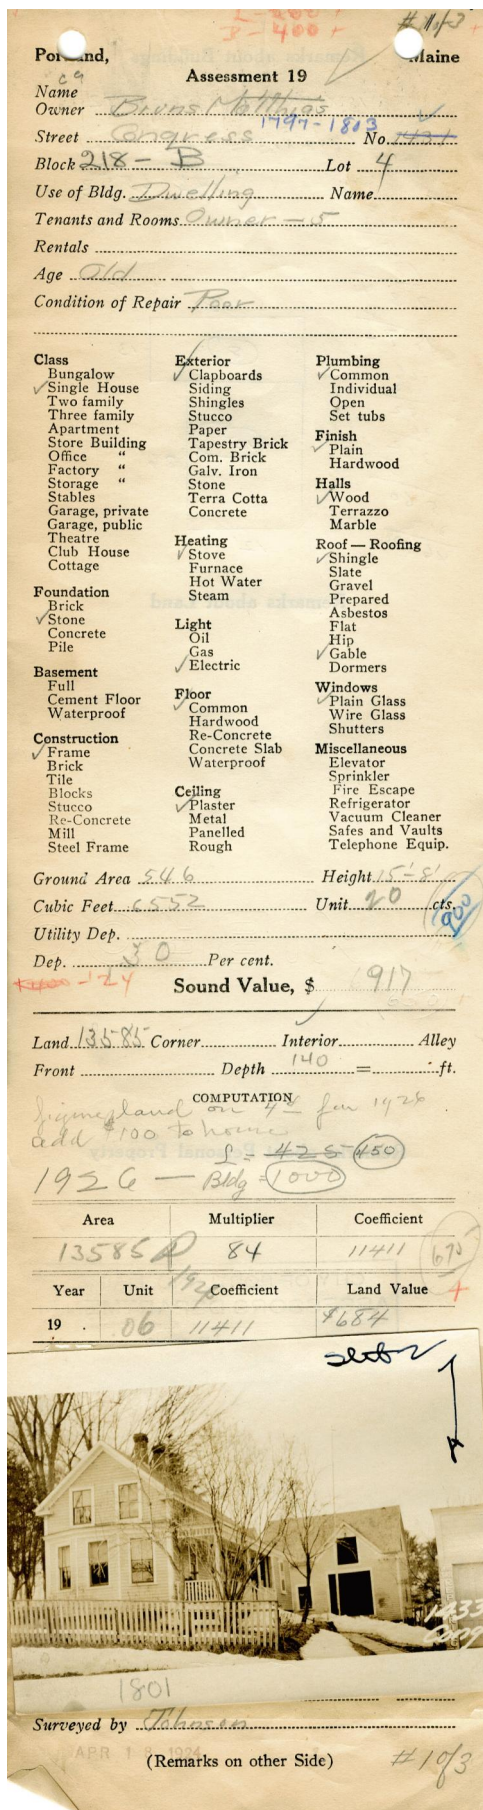 L-200+
B-400+
# 1 of 3
Portland, Maine
Assessment 19
ca
Name
Owner Bruns Matthias
1797-1803
Street Congress No. 1431
Block 218-B Lot 4
Use of Bldg. Dwelling Name
Tenants and Rooms Owner - 5
Rentals
Age Old
Condition of Repair Poor
Class
Bungalow
✓Single House
Two family
Three family
Apartment
Store Building
Office "
Factory "
Storage "
Stables
Garage, private
Garage, public
Theatre
Club House
Cottage
Foundation
Brick
✓Stone
Concrete
Pile
Basement
Full
Cement Floor
Waterproof
Construction
✓Frame
Brick
Tile
Blocks
Stucco
Re-Concrete
Mill
Steel Frame
Exterior
✓Clapboards
Siding
Shingles
Stucco
Paper
Tapestry Brick
Com. Brick
Galv. Iron
Stone
Terra Cotta
Concrete
Heating
✓Stove
Furnace
Hot Water
Steam
Light
Oil
Gas
✓Electric
Floor
✓Common
Hardwood
Re-Concrete
Concrete Slab
Waterproof
Ceiling
✓Plaster
Metal
Panelled
Rough
Plumbing
✓Common
Individual
Open
Set tubs
Finish
✓Plain
Hardwood
Halls
✓Wood
Terrazzo
Marble
Roof — Roofing
✓Shingle
Slate
Gravel
Prepared
Asbestos
Flat
Hip
✓Gable
Dormers
Windows
✓Plain Glass
Wire Glass
Shutters
Miscellaneous
Elevator
Sprinkler
Fire Escape
Refrigerator
Vacuum Cleaner
Safes and Vaults
Telephone Equip.
Ground Area 546 Height 15'-8'
Cubic Feet 6552 Unit 20 cts.
900
Utility Dep.
Dep. 30 Per cent.
-'24
Sound Value, $ 917
Land 13585 Corner Interior Alley
Front Depth 140 = ft.
COMPUTATION
figure land on 4¢ for 1926
add $100 to house
L - 425 450
1926 — Bldg - 1000
Area Multiplier Coefficient
13585 84 11411 695
Year Unit 1926 Coefficient Land Value
19 06 11411 $684
1433
Cong
1801
Surveyed by Johnson
APR 1 1924
(Remarks on other Side)
# 1 of 3